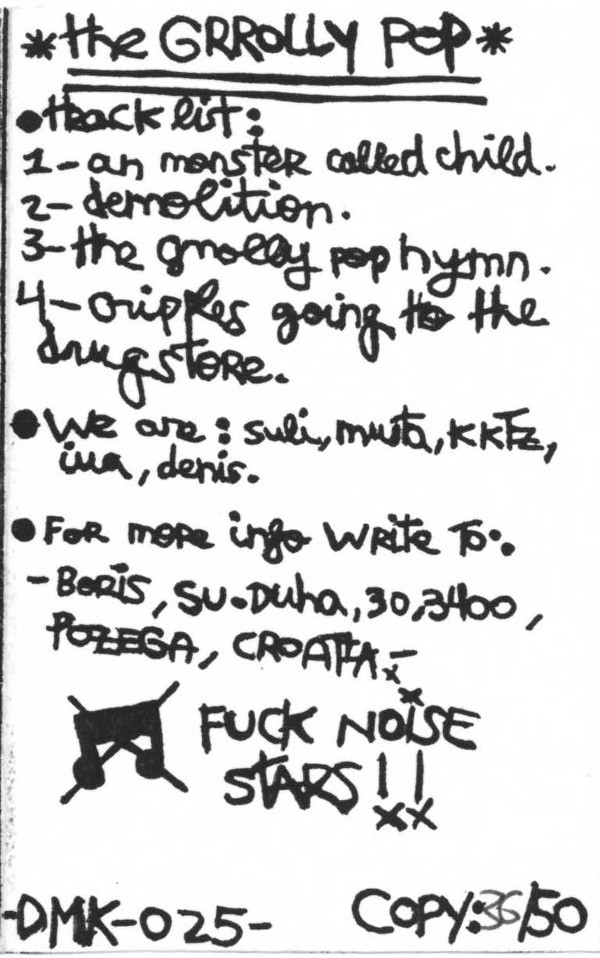 *the GRROLLY POP*
•track list:
1-an monster called child.
2-demolition.
3-the grrolly pop hymn.
4-cripples going to the
drugstore.
•We are: suli, musta, KKTZ,
iva, denis.
•FOR more info WRite To:
-BORIS, SV.DUHA, 30, 3400,
POZEGA, CROATIA.-
FUCK NOISE
STARS!!
-DMK-025-
COPY:36/50